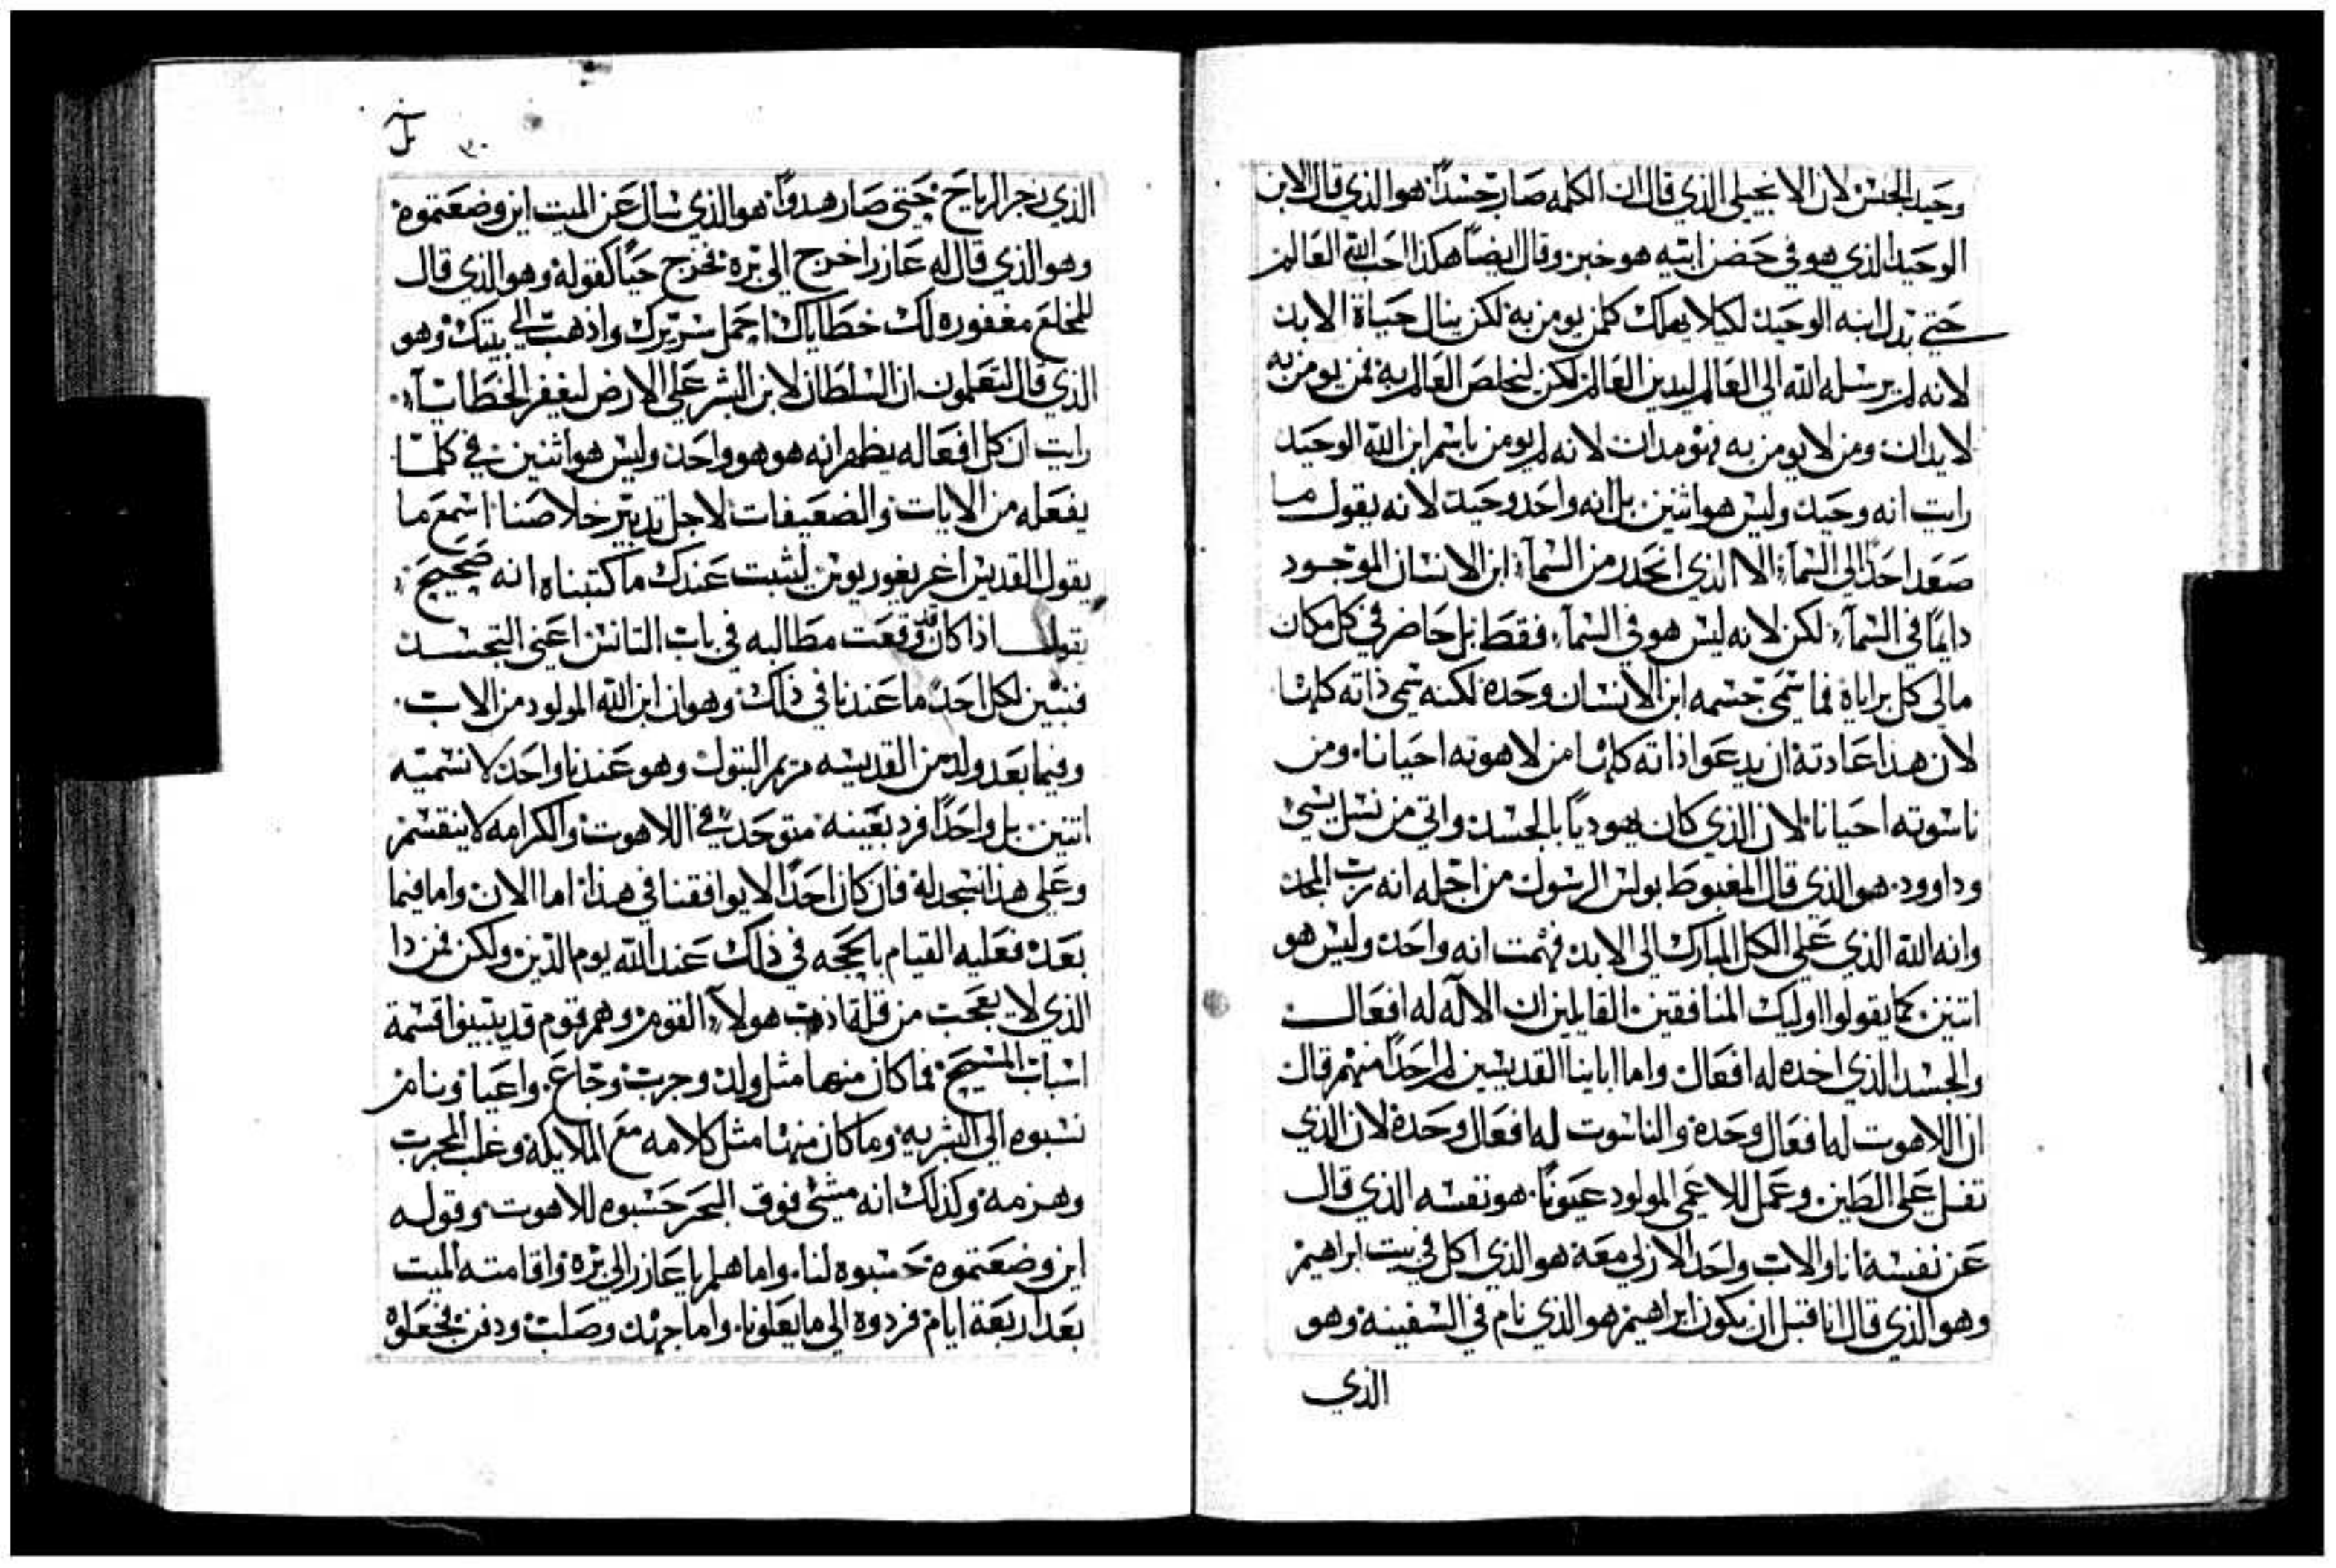 وحيد الجنس لان الانجيلي الذي قال ان الكلمه صار جسداً هو الذي قال الابن
الوحيد الذي هو في حضن ابيه هو خبر وقال ايضاً هكذا احب الله العالم
حتي بدل ابنه الوحيد لكيلا يهلك كلمن يومن به لكن ينال حياة الابد
لانه لم يرسله الله الي العالم ليدين العالم لكن ليخلص العالم به فمن يومن به
لا يدان ومن لا يومن به فهو مدان لانه لم يومن باسم ابن الله الوحيد
رايت انه وحيد وليس هو اثنين بل انه واحد وحيد لانه يقول ما
صعد احد الي السمآء الا الذي انحدر من السمآء ابن الانسان الموجود
دايماً في السمآء لكن لانه ليس هو في السمآء فقط بل حاضر في كل مكان
مالي كل براياه فما سمي جسمه ابن الانسان وحده لكنه سمي ذاته كلها
لان هذا عادته ان يدعوا ذاته كلها من لاهوته احيانا ومن
ناسوته احيانا لان الذي كان يهودياً بالجسد واتي من نسل يسي
وداوود هو الذي قال المغبوط بولس الرسول من اجله انه رب المجد
وانه الله الذي علي الكل المبارك الي الابد فهمت انه واحد وليس هو
اتنين كما يقولوا اوليك المنافقين القايلين ان الاله له افعال
والجسد الذي اخده له افعال واما اباينا القديسين لم احداً منهم قال
ان اللاهوت له افعال وحده والناسوت له افعال وحده لان الذي
تفل علي الطين وعمل للاعمي المولود عيوناً هو نفسه الذي قال
عن نفسه انا والاب واحد الازلي معه هو الذي اكل في بيت ابراهيم
وهو الذي قال انا قبل ان يكون ابراهيم هو الذي نام في السفينه وهو
الذي
٣٠
الذي زجر الرياح حتي صار هدواً هو الذي سال عن الميت اين وضعتموه
وهو الذي قال له عازر اخرج الي بره فخرج حياً كقوله وهو الذي قال
للمخلع مغفوره لك خطاياك احمل سريرك واذهب الي بيتك وهو
الذي قال لتعلمون ان السلطان لابن البشر علي الارض ليغفر الخطايا
رايت ان كل افعاله يظهر انه هو هو واحد وليس هو اثنين في كلما
يفعله من الايات والضعيفات لاجل تدبير خلاصنا اسمع ما
يقول القديس اغريغوريوس ليثبت عندك ما كتبناه انه صحيح
يقول اذا كان قد وقعت مطالبه في باب التانس اعني التجسد
فنبين لكل احد ما عندنا في ذلك وهو ان ابن الله المولود من الاب
وفيما بعد ولد من القديسه مريم البتول وهو عندنا واحد لا نسميه
اتنين بل واحداً فرد بعينه متوحد في اللاهوت والكرامه لا ينقسم
وعلي هذا نسجد له فان كان احداً لا يوافقنا في هذا اما الان واما فيما
بعد فعليه القيام بالحجه في ذلك عند الله يوم الدين ولكن فمن دا
الذي لا يعجب من قلة ادب هولآء القوم وهم قوم قد يتبينوا قسمة
اسباب المسيح فما كان منها مثل ولد وجرب وجاع واعيا ونام
نسبوه الي البشريه وما كان منها مثل كلامه مع الملايكه وغلب المجرب
وهزمه وكذلك انه مشي فوق البحر حسبوه للاهوت وقوله
اين وضعتموه حسبوه لنا واما هلم يا عازر الي بره واقامته الميت
بعد اربعة ايام فردوه الي ما يعلونا واما جهد وصلب ودفن فجعلوه